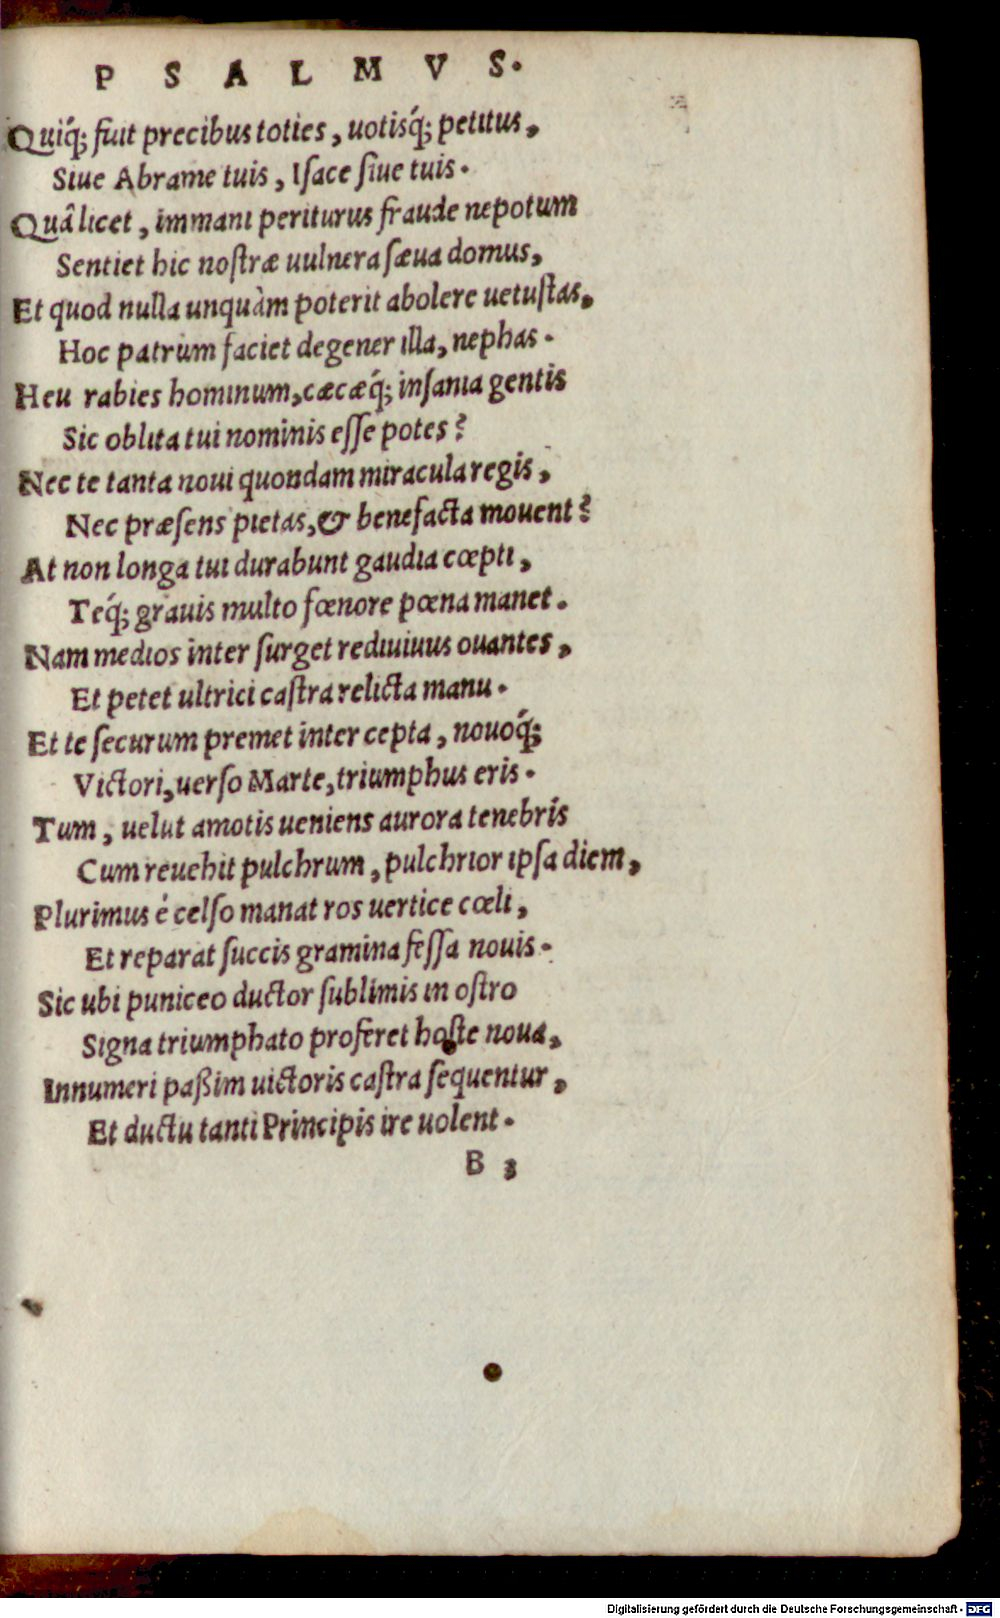 P S A L M V S.
Quiq́; fuit precibus toties, uotisq́; petitus,
Siue Abrame tuis, Iſace ſiue tuis.
Quâ licet, immani periturus fraude nepotum
Sentiet hic noſtræ uulnera ſæua domus,
Et quod nulla unquàm poterit abolere uetuſtas,
Hoc patrum faciet degener illa, nephas.
Heu rabies hominum, cæcæq́; inſania gentis
Sic oblita tui nominis eſſe potes?
Nec te tanta noui quondam miracula regis,
Nec præſens pietas, & benefacta mouent?
At non longa tui durabunt gaudia cœpti,
Teq́; grauis multo fœnore pœna manet.
Nam medios inter ſurget rediuiuus ouantes,
Et petet ultrici caſtra relicta manu.
Et te ſecurum premet inter cepta, nouoq́;
Victori, uerſo Marte, triumphus eris.
Tum, uelut amotis ueniens aurora tenebris
Cum reuehit pulchrum, pulchrior ipſa diem,
Plurimus é celſo manat ros uertice cœli,
Et reparat ſuccis gramina feſſa nouis.
Sic ubi puniceo ductor ſublimis in oſtro
Signa triumphato proferet hoſte noua,
Innumeri paßim uictoris caſtra ſequentur,
Et ductu tanti Principis ire uolent.
B 3
Digitalisierung gefördert durch die Deutsche Forschungsgemeinschaft - DFG